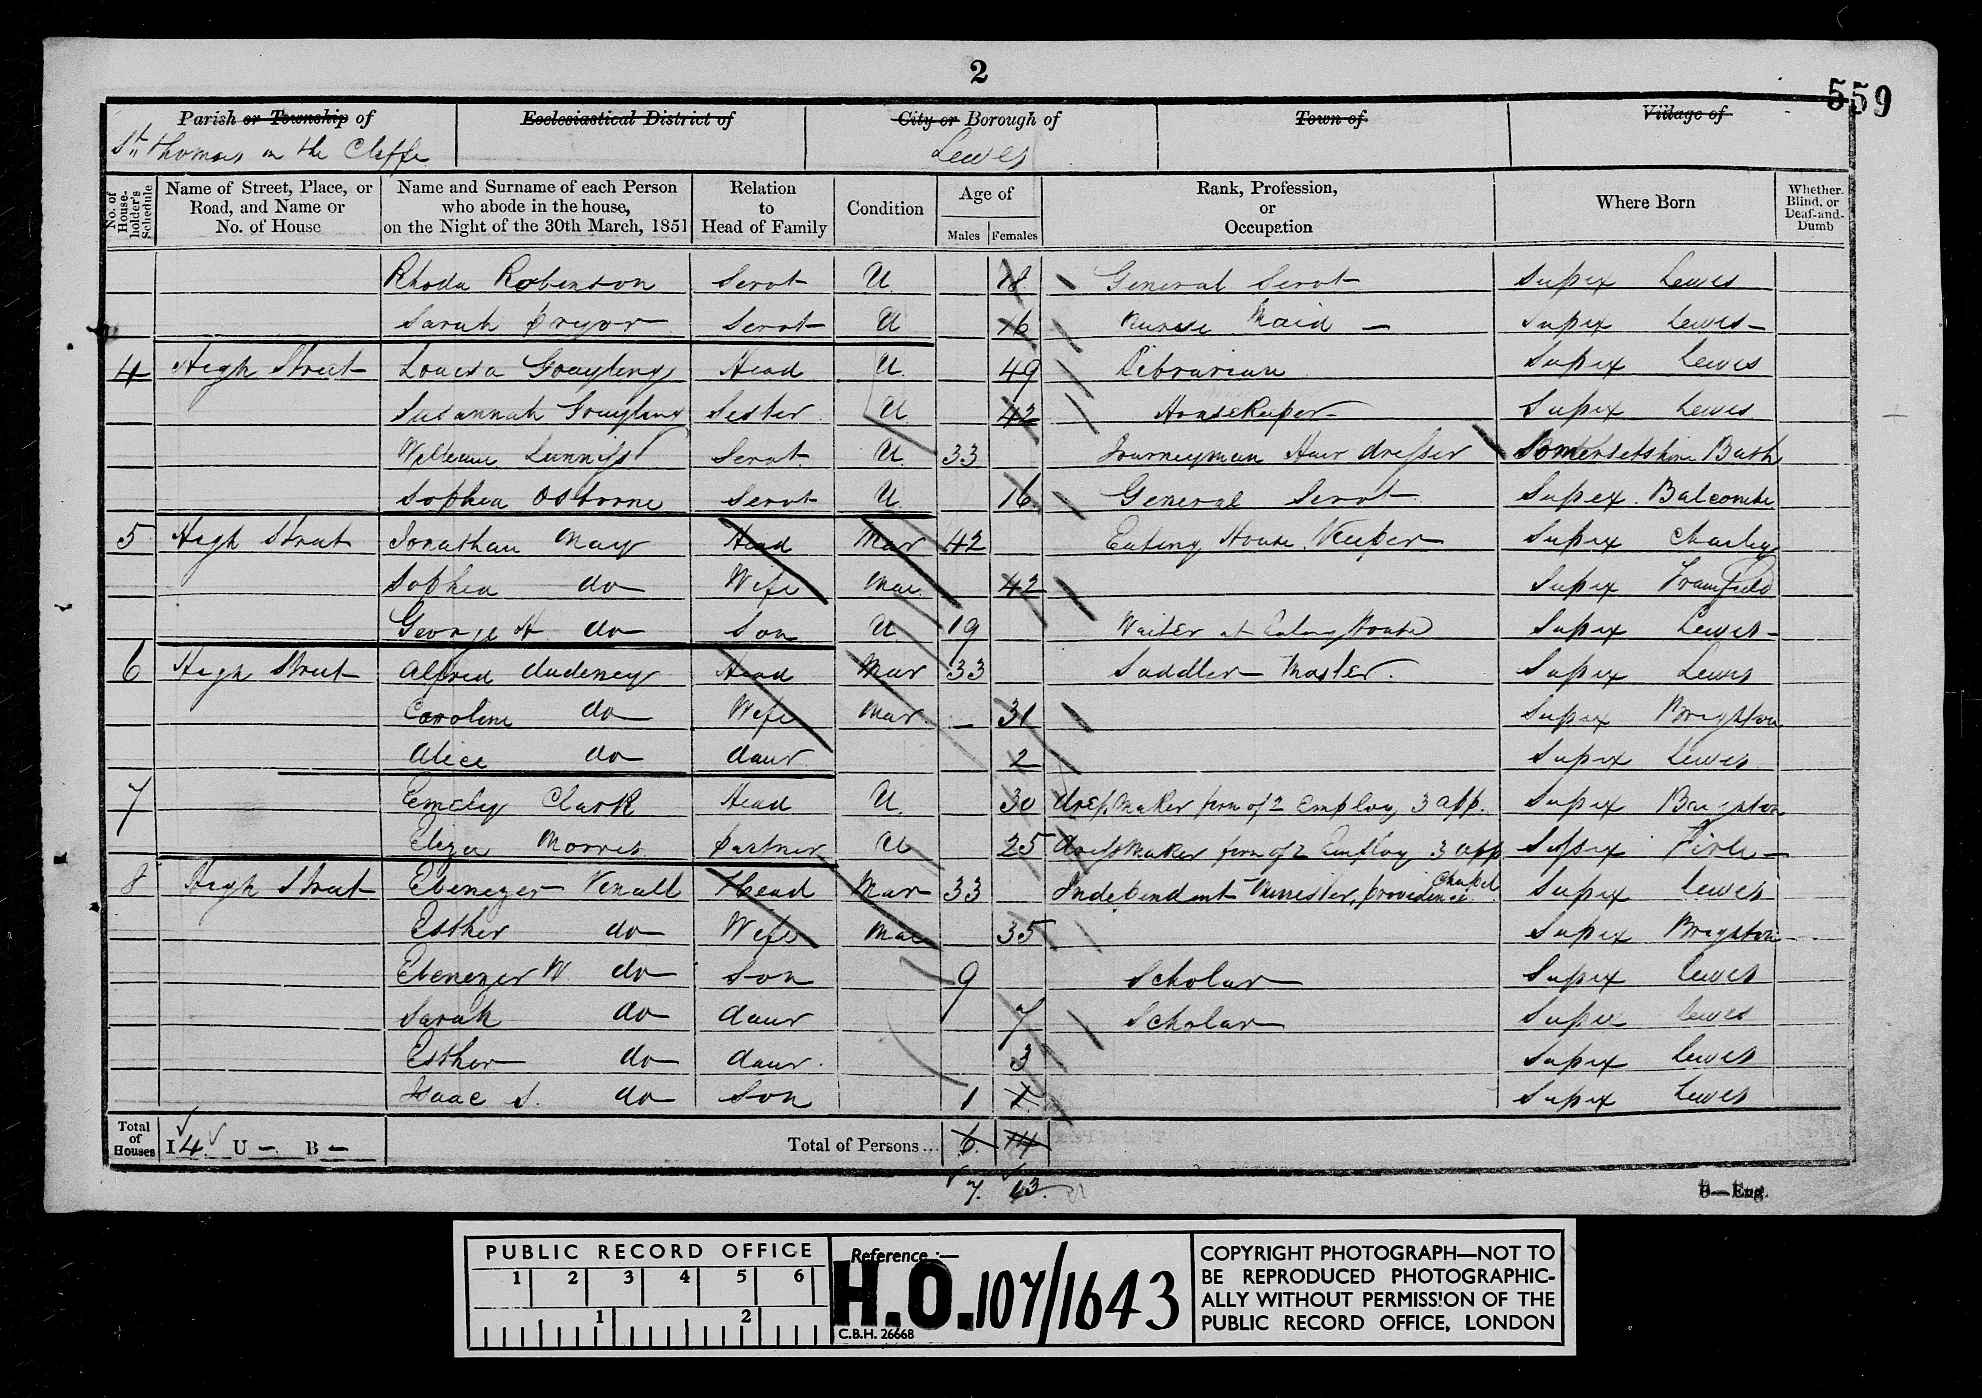 2
559
Parish or Township of Ecclesiastical District of City or Borough of Town of Village of
St Thomas in the Cliffe Lewes
No. of House-holder's Schedule Name of Street, Place, or Road, and Name or No. of House Name and Surname of each Person who abode in the house, on the Night of the 30th March, 1851 Relation to Head of Family Condition Age of Males Females Rank, Profession, or Occupation Where Born Whether Blind, or Deaf-and-Dumb
Rhoda Robinson Servt U 18 General Servt Sussex Lewes
Sarah Pryor Servt U 16 Nurse Maid Sussex Lewes
4 High Street Louisa Grayling Head U 49 Librarian Sussex Lewes
Susannah Grayling Sister U 42 Housekeeper Sussex Lewes
William Servt U 33 Journeyman Hair dresser Somersetshire Bath
Sophia Osborne Servt U 16 General Servt Sussex Balcombe
5 High Street Jonathan May Head Mar 42 Eating House Keeper Sussex Chailey
Sophia do Wife Mar 42 Sussex Framfield
George H do Son U 19 Waiter at Eating House Sussex Lewes
6 High Street Alfred Dudeney Head Mar 33 Saddler Master Sussex Lewes
Caroline do Wife Mar 31 Sussex Brighton
Alice do daur 2 Sussex Lewes
7 Emily Clark Head U 30 dress Maker firm of 2 Employ 3 app. Sussex Brighton
Eliza Morris partner U 25 dress Maker firm of 2 Employ 3 app Sussex Firle
8 High Street Ebenezer Vinall Head Mar 33 Independent Minister, providence Chapel Sussex Lewes
Esther do Wife Mar 35 Sussex Brighton
Ebenezer W do Son 9 Scholar Sussex Lewes
Sarah do daur 7 Scholar Sussex Lewes
Esther do daur 3 Sussex Lewes
Isaac S. do Son 1 1 Sussex Lewes
Total of Houses I 4 U — B — Total of Persons... 6 14
7. 13.
B—Eng.
PUBLIC RECORD OFFICE
1 2 3 4 5 6
1 2
Reference :—
H.O. 107/1643
C.B.H. 26668
COPYRIGHT PHOTOGRAPH—NOT TO
BE REPRODUCED PHOTOGRAPHIC-
ALLY WITHOUT PERMISSION OF THE
PUBLIC RECORD OFFICE, LONDON